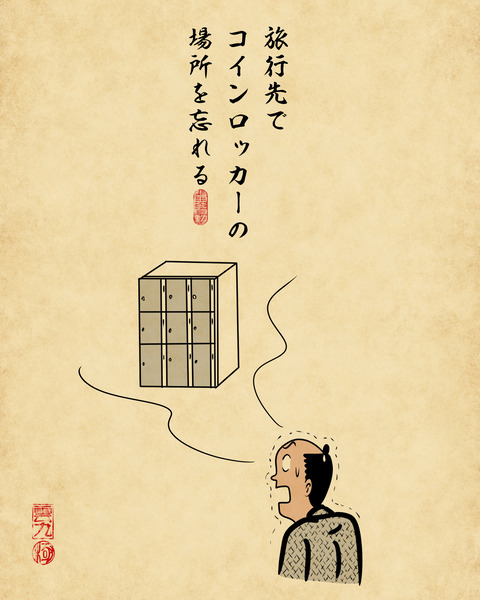 旅行先で
コインロッカーの
場所を忘れる